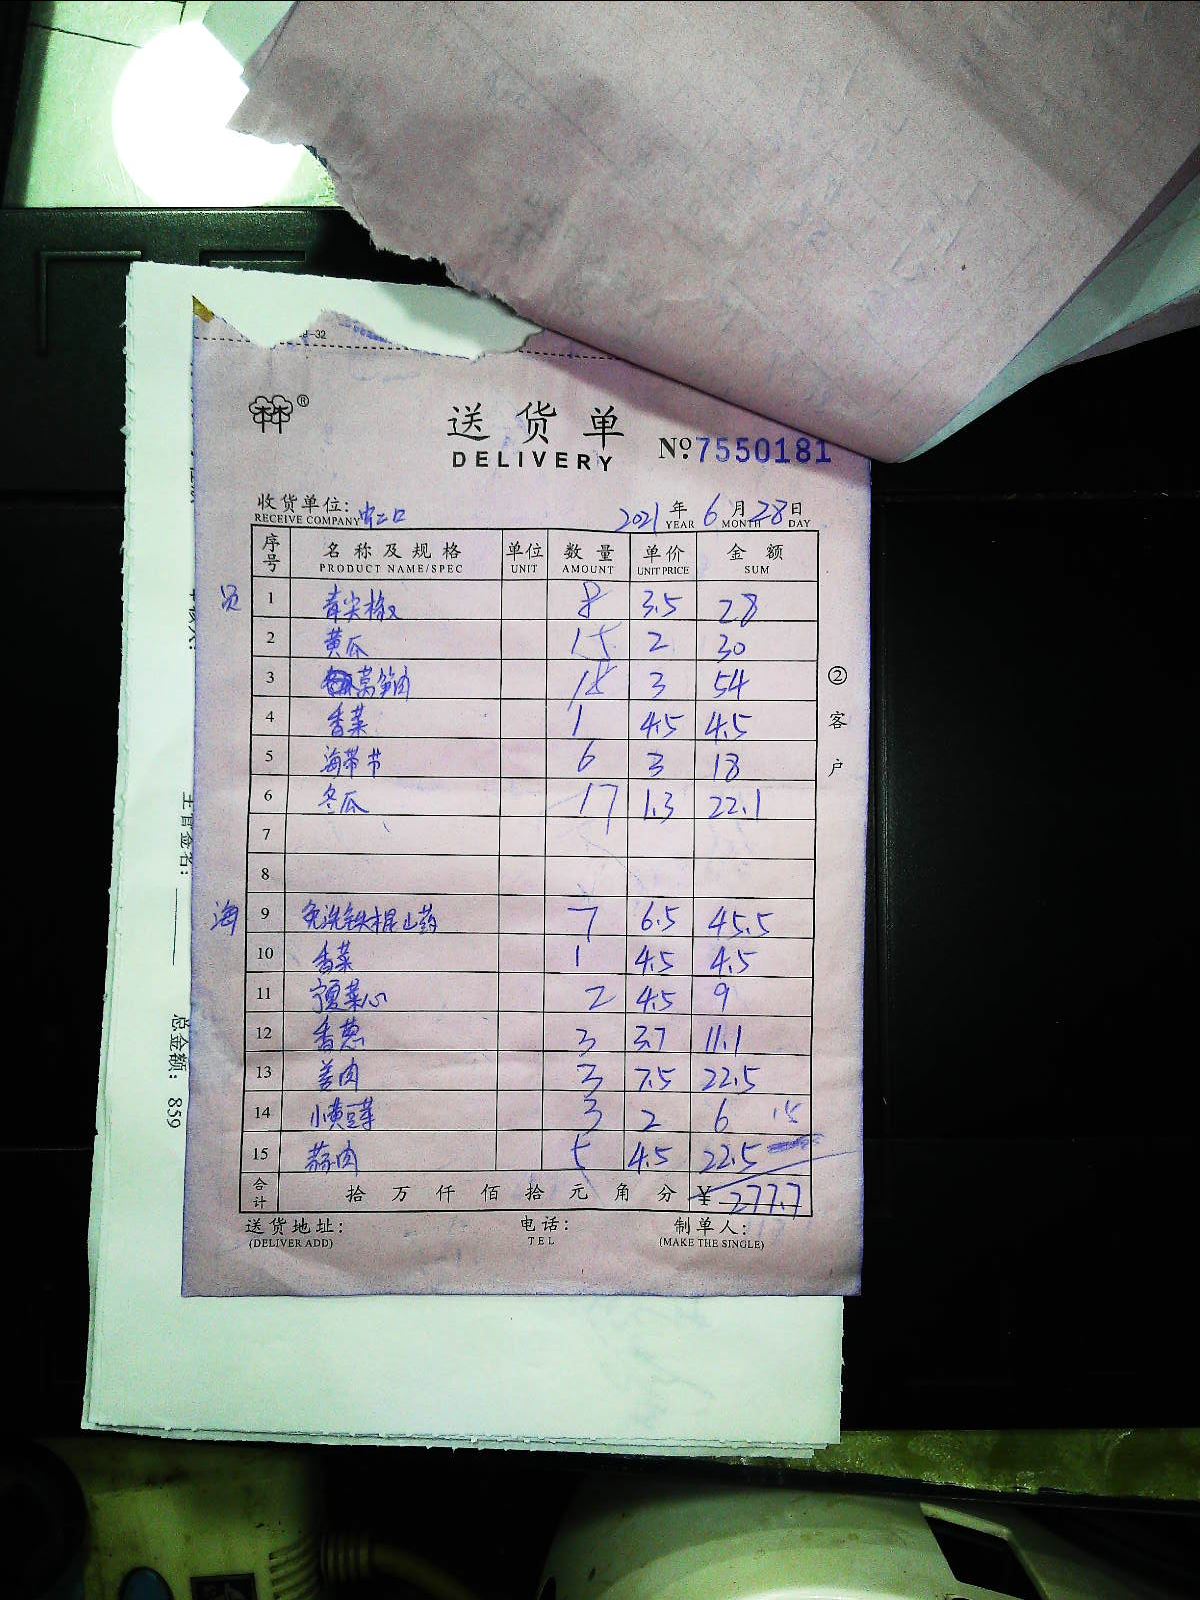 送货单
DELIVERY
№:7550181
收货单位:
RECEIVE COMPANY
2021年6月28日
YEAR MONTH DAY
序号 名称及规格 单位 数量 单价 金额
PRODUCT NAME/SPEC UNIT AMOUNT UNIT PRICE SUM
员 1 青尖椒 8 3.5 28
2 黄瓜 15 2 30
3 莴笋肉 18 3 54
4 香菜 1 4.5 4.5
5 海带节 6 3 18
6 冬瓜 17 1.3 22.1
7
8
海 9 免洗铁棍山药 7 6.5 45.5
10 香菜 1 4.5 4.5
11 宁夏菜心 2 4.5 9
12 香葱 3 3.7 11.1
13 姜肉 3 7.5 22.5
14 小黄豆芽 3 2 6
15 蒜肉 5 4.5 22.5
合计 拾万仟佰拾元角分 ¥ 277.7
送货地址: 电话: 制单人:
(DELIVER ADD) TEL (MAKE THE SINGLE)
②客户
主官金名:
总金额: 859